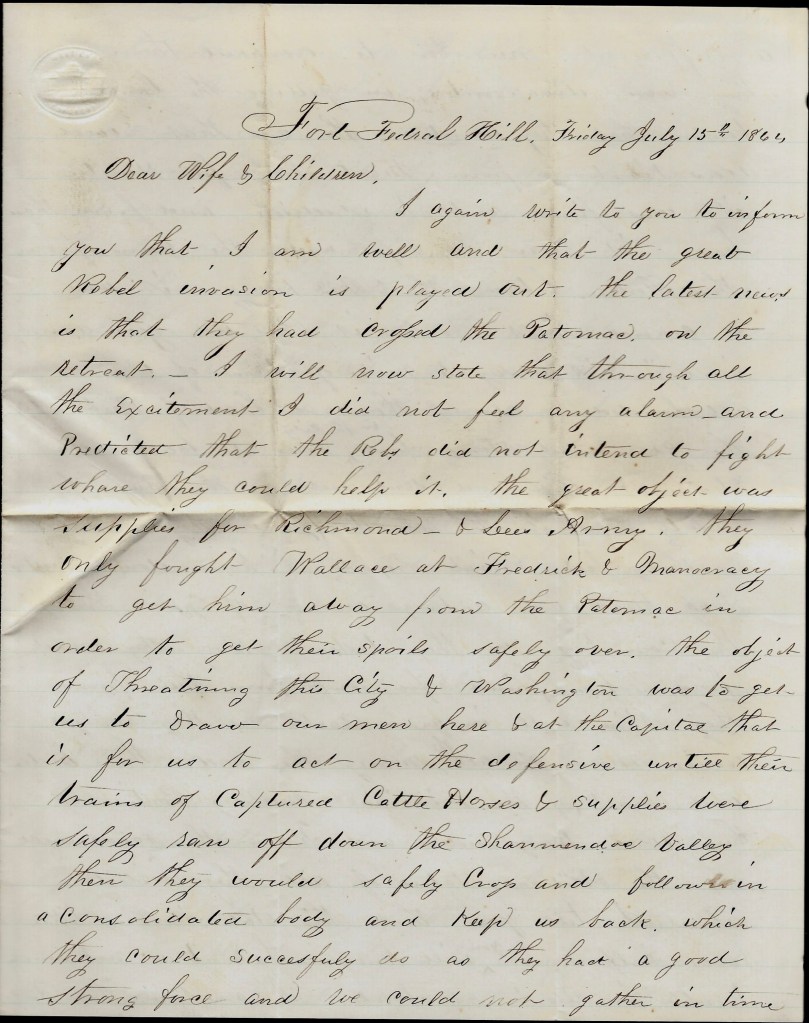 Fort Fedral Hill. Friday July 15th 1864
Dear Wife & Children,
I again write to you to inform
you that I am well and that the great
Rebel invasion is played out. the latest news
is that they had crossed the Patomac. on the
retreat. – I will now state that through all
the Excitement I did not feel any alarm – and
Predicted that the Rebs did not intend to fight
whare they could help it. the great object was
Supplies for Richmond – & Lees Army. they
only fought Wallace at Fredrick & Manocracy
to get him away from the Patomac in
order to get their spoils safely over. the object
of Threatining this City & Washington was to get
us to Draw our men here & at the Capital that
is for us to act on the defensive untill their
trains of Captured Cattle Horses & Supplies were
safely ran off down the Shannendoe Valley
then they would safely Cross and follow in
a Consolidated body and Keep us back. which
they could succesfuly do as they had a good
strong force and we could not gather in time